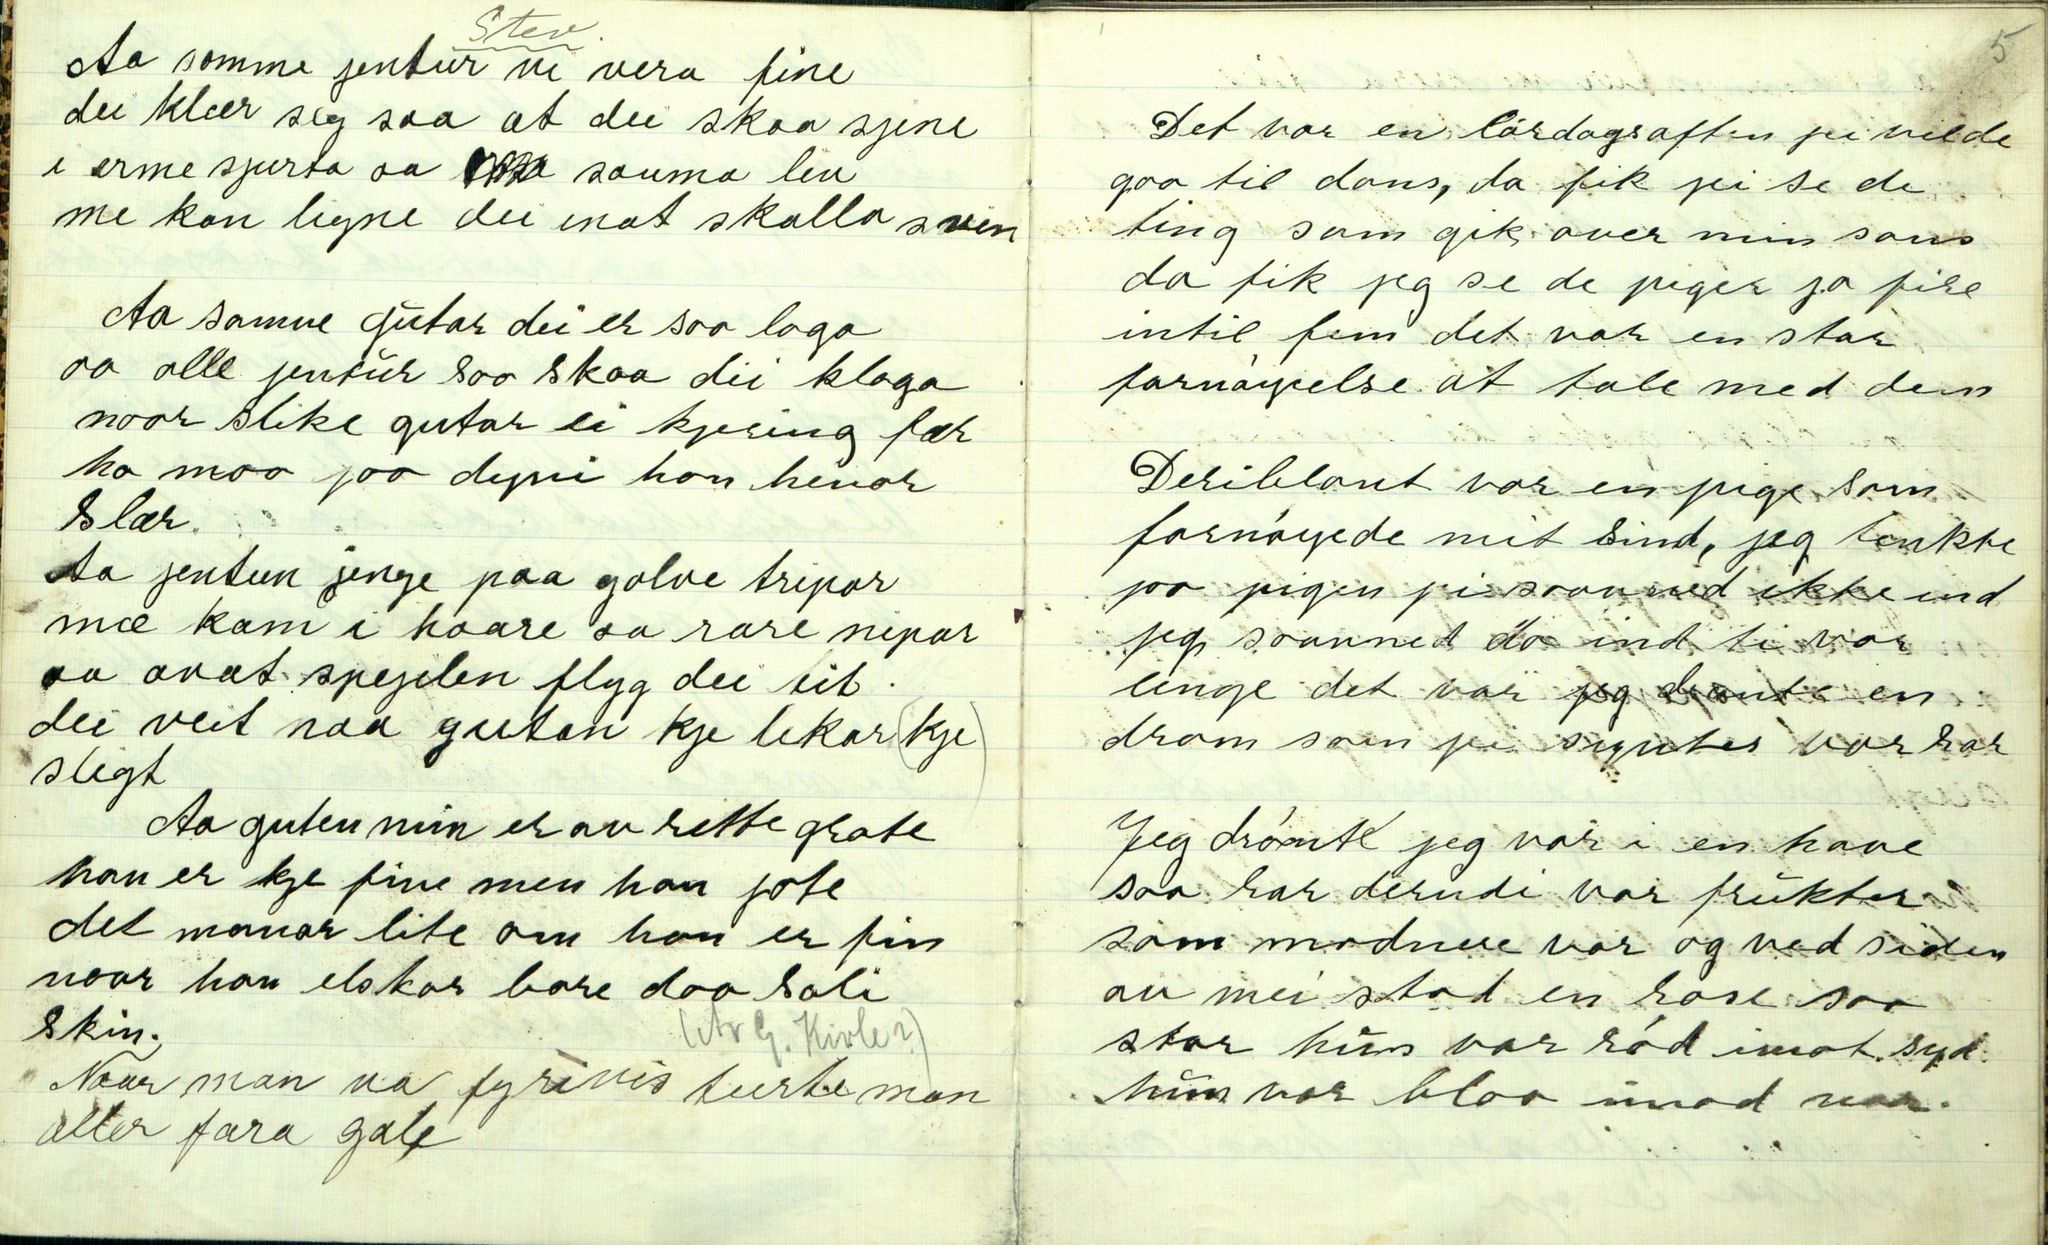 Stev.
Aa somme jentur vi vera fine
dei klær seg saa at dei skaa sjine
i erme sjurta oa sauma lin
me kan ligne dei inot skalla svin
Aa somme gutar dei er soo laga
oa alle jentur soo skaa dei klaga
noor slike gutar ei kjering fær
ho moo joo dyni han henar
slær.
Aa jentun jenge paa golve tripar
mæ kam i haare oa rare nipar
oa avat spegelen flyg dei tit
dei veit naa gutan kje likar (kje)
sligt
Aa guten min er au rette grate
han er kje fine men han jote
det monar lite om han er fin
noor han elskar bare doo soli
skin.
(Av G. Kivle?)
Naar man va fyrivis turte man
alter fara gale
5
Det var en lördagsaften jei vilde
gaa til dans, da fik jei se de
ting som gik over min sans
da fik jeg se de piger ja fire
intil fem det var en stor
fornöyelse at tale med dem
Deriblant var en pige som
fornöyede mit sind, jeg tenkte
paa pigen jei saavned ikke ind
jeg saavned da ind ti var
lenge det var jeg drömte en
dröm som jei syntes var rar
Jeg drömte jeg var i en have
saa rar derudi var frukter
som modnere var og ved siden
au mei stod en rose saa
stor hun var röd imot syd
hun var blaa imod nor.